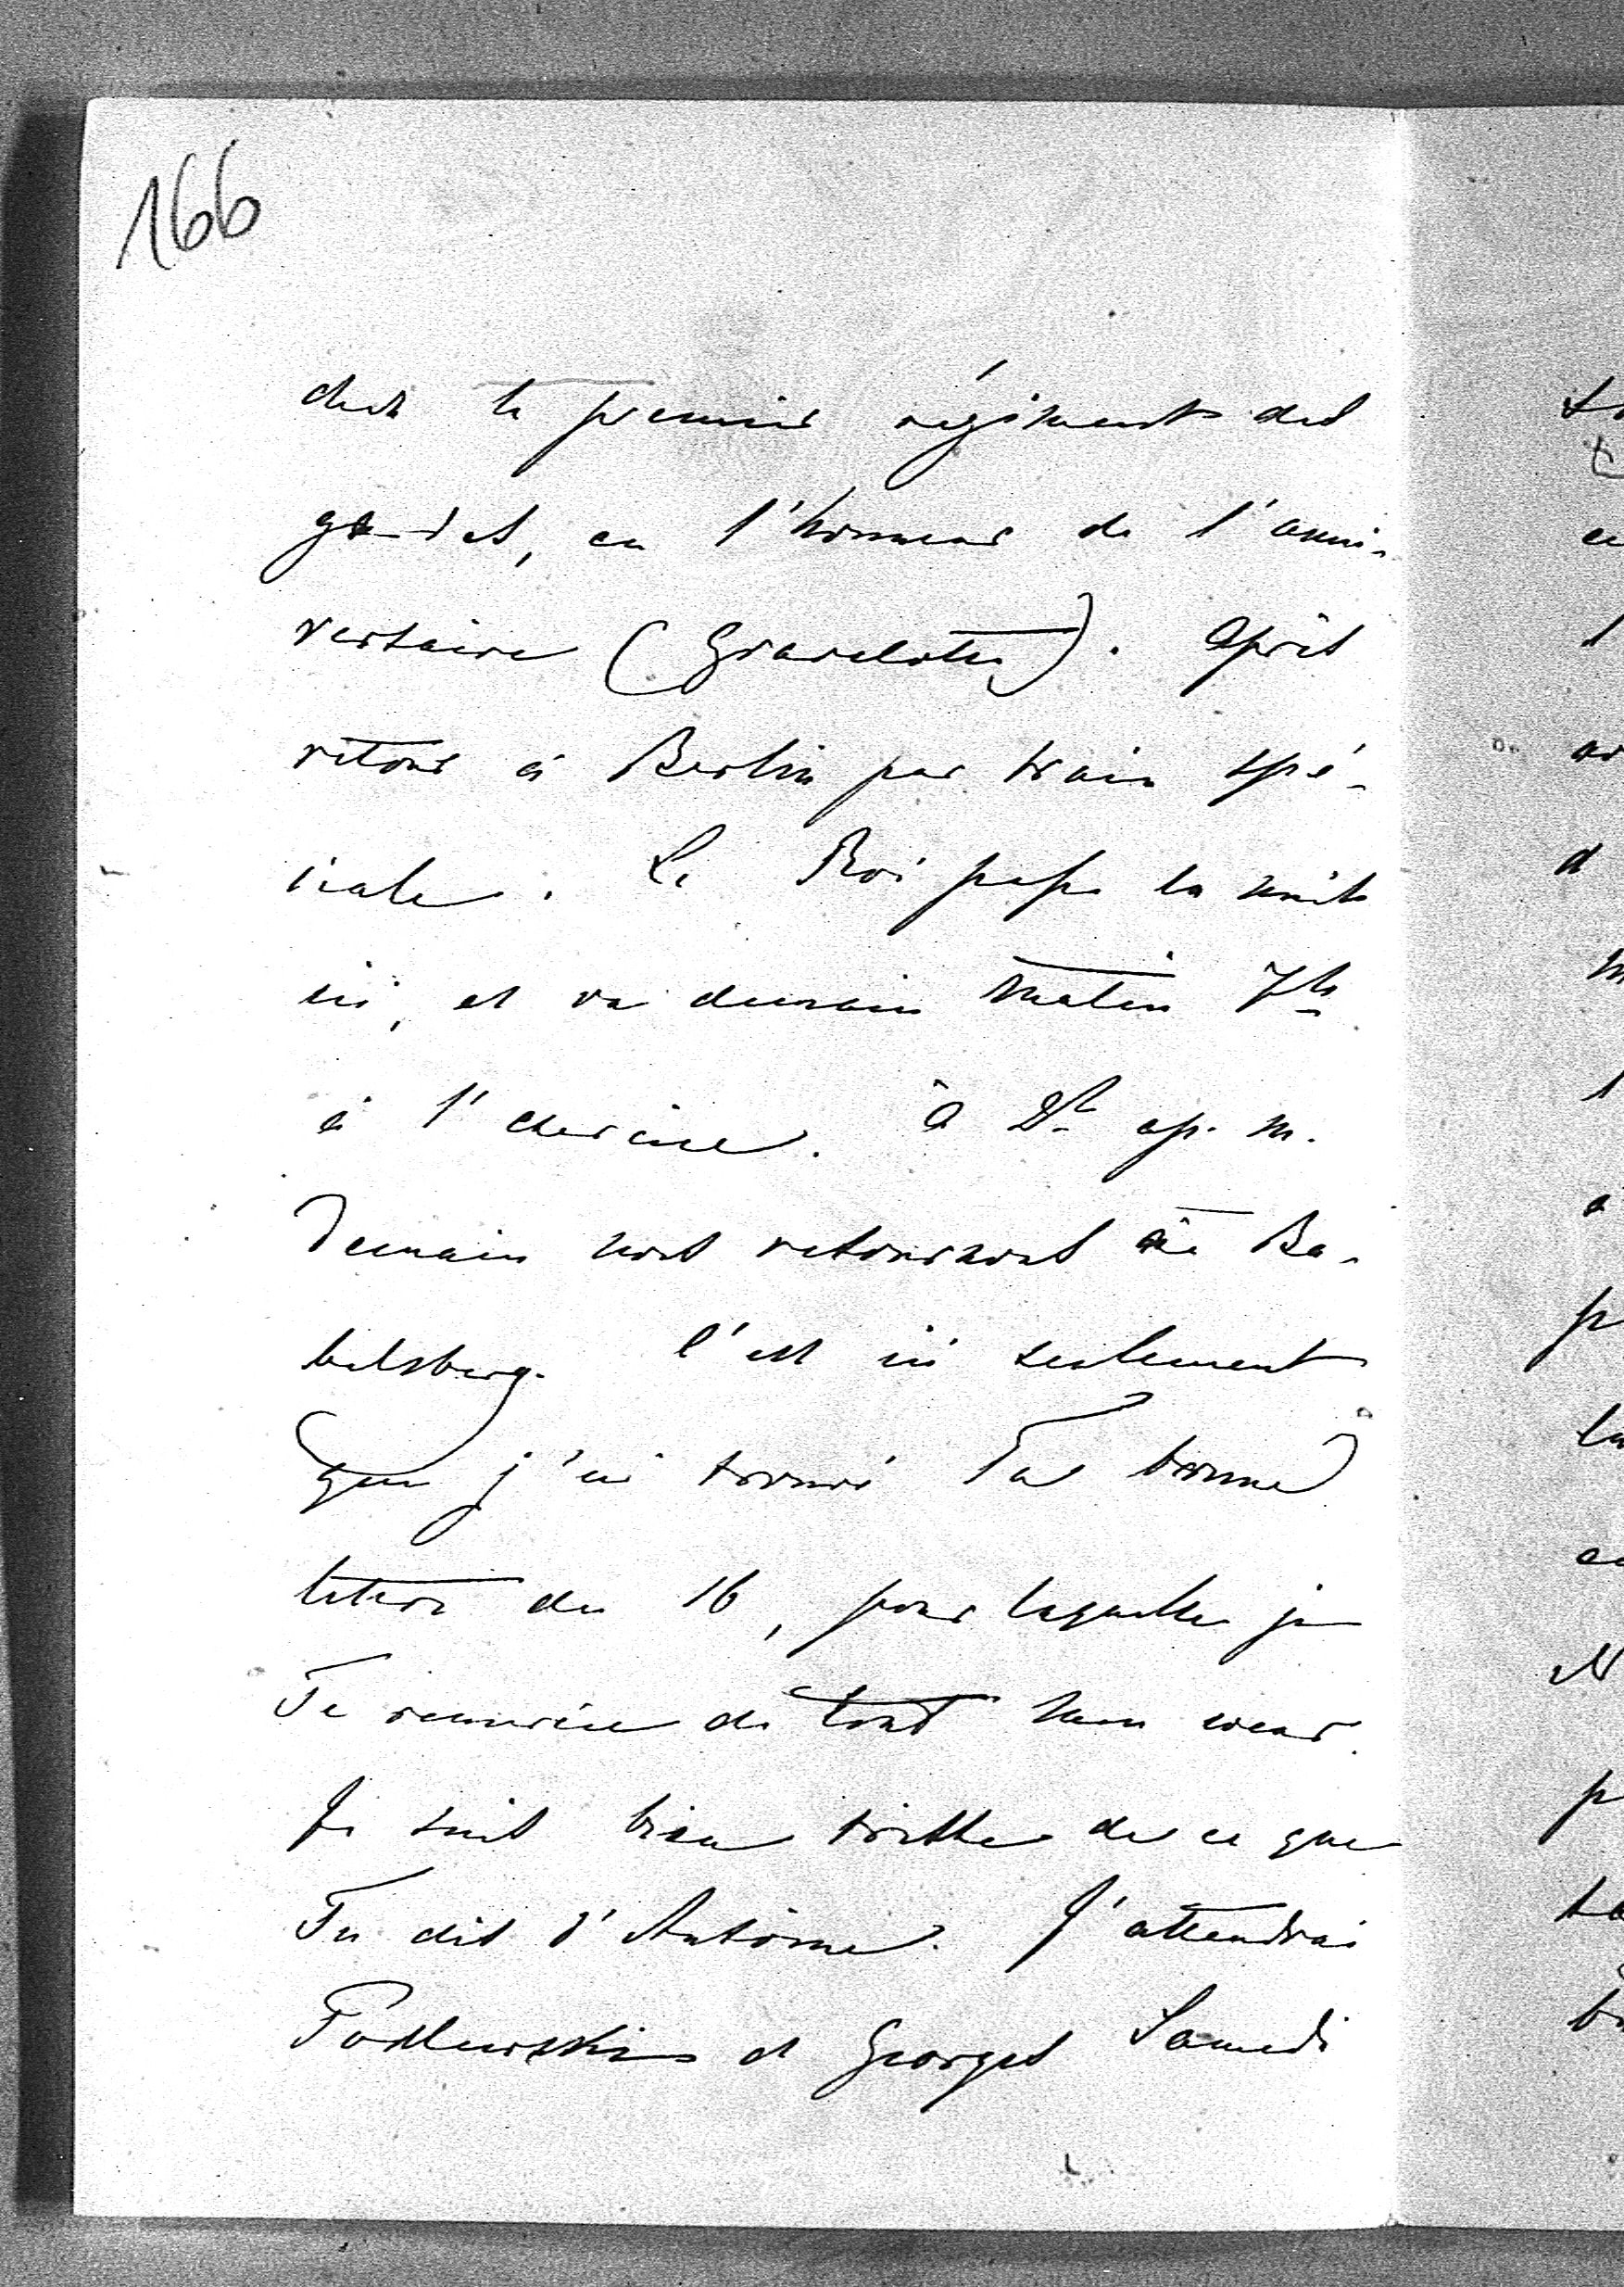 166
chez le premier régiment des
gardes, en l'honneur de l'anni-
versaire (Gravelotte). Après
retour à Berlin par train spé-
ciale. Le Roi passe la nuit
ici, et va demain matin 7h
à l'exercice. à 2h ap. m.
Demain nous retournons à Ba-
belsberg. C'est ici seulement
que j'ai trouvé Ta bonne
lettre du 16, pour laquelle je
Te remercie de tout mon coeur.
Je suis bien triste de ce que
Tu dis d'Antoine. J'attendrai
Podlewski et Georges Samedi